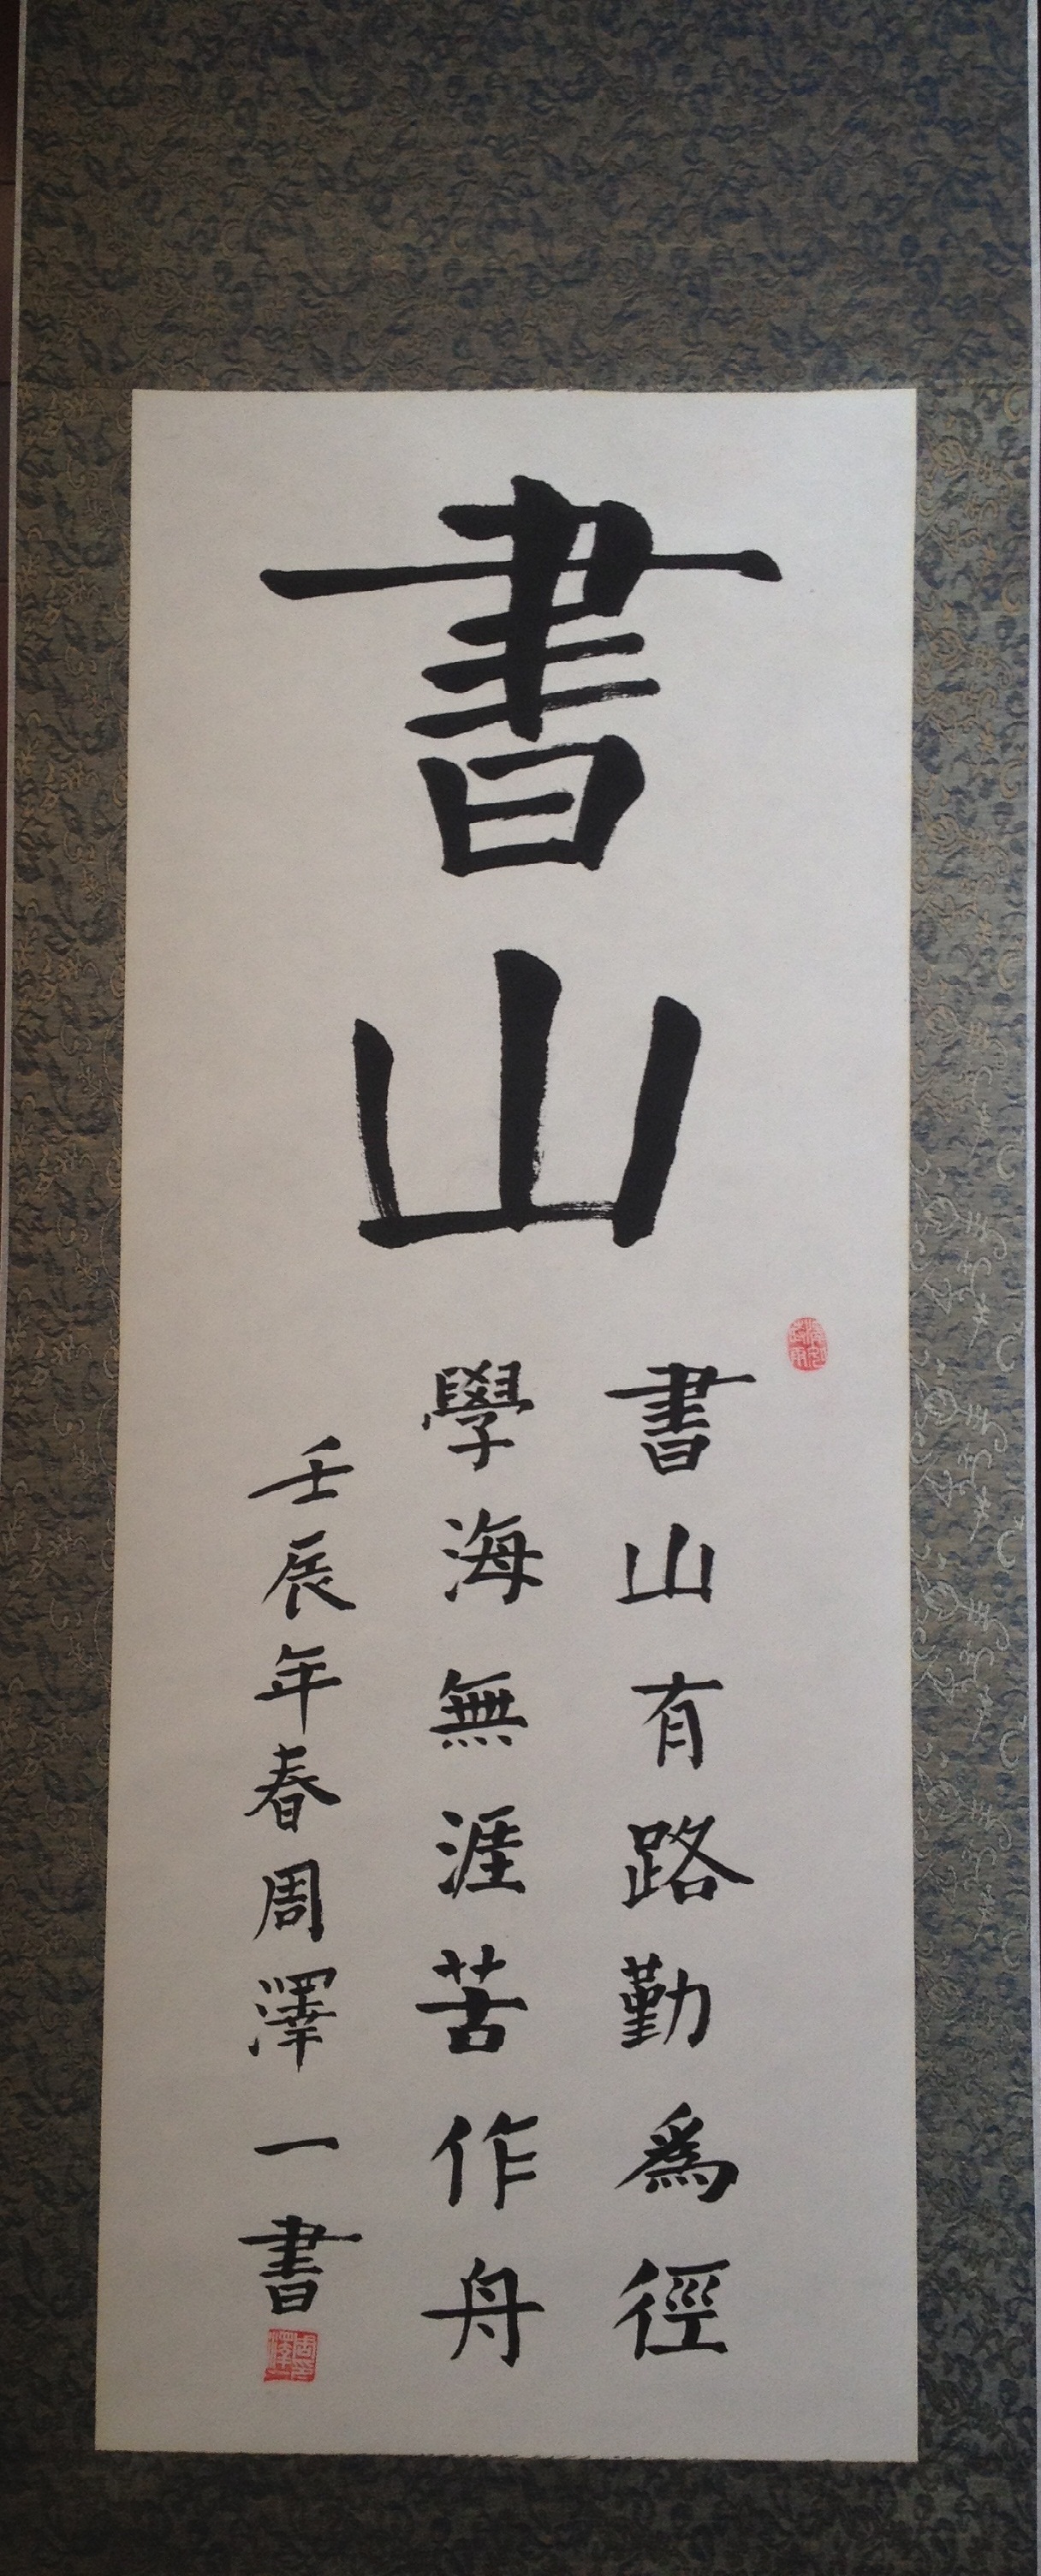 書山
書山有路勤為徑
學海無涯苦作舟
壬辰年春周澤一書